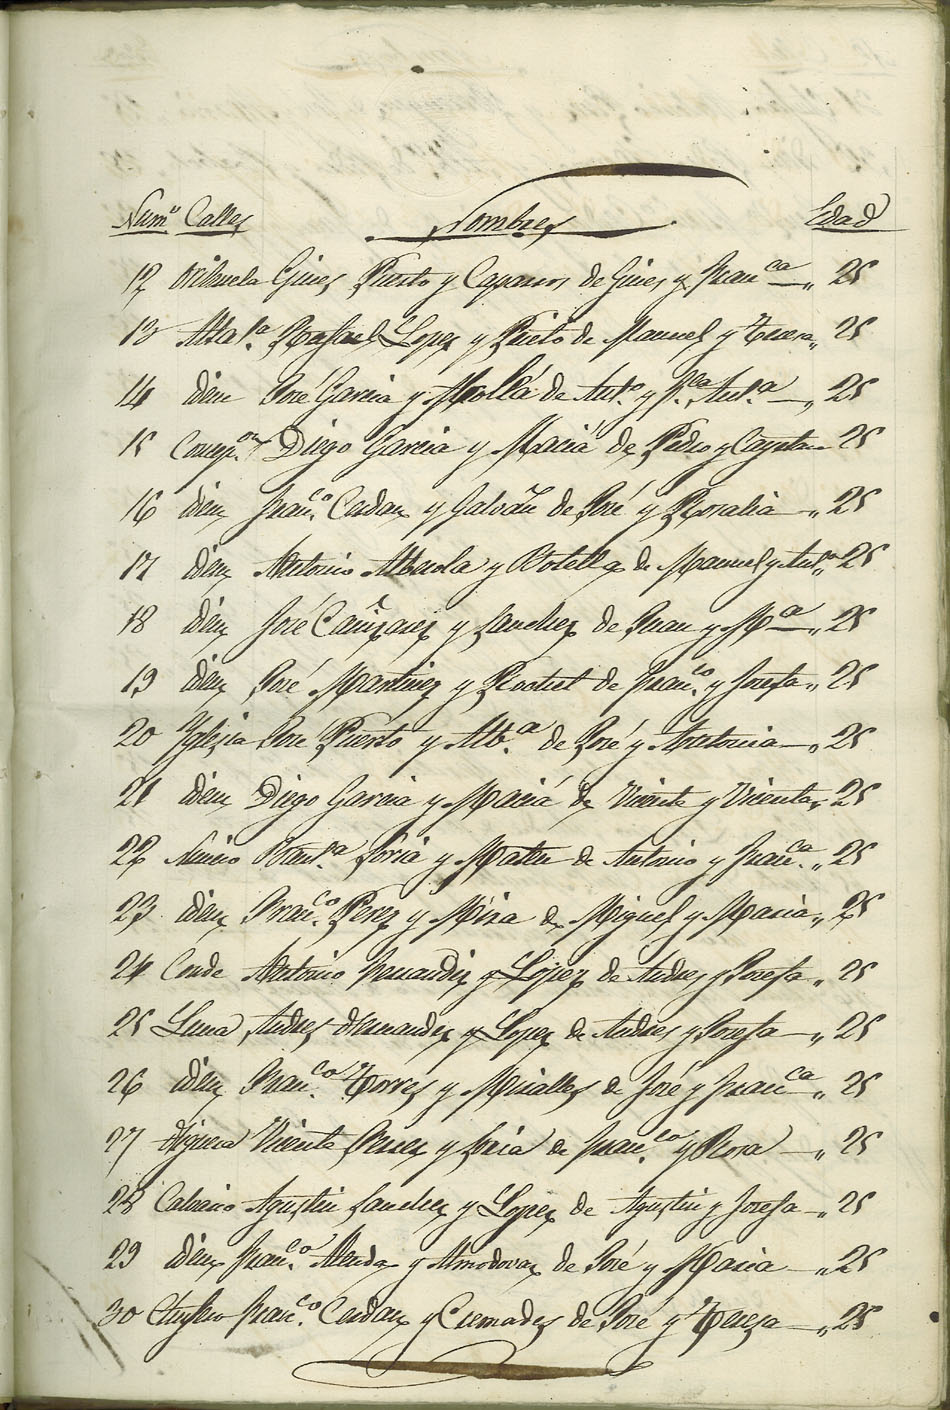 Num.º Calles Nombres Edad
12 Orihuela Gines Puerto y Caparros de Gines y Fran.ca — „ 25
13 Alta P.a Rafael Lopez y Prieto de Manuel y Teresa „ 25
14 idem José Garcia y Mollá de Ant.º y F.ca Ant.a — „ 25
15 Concep.on Diego Garcia y Maciá de Pedro y Cayeta.. 25
16 idem Fran.co Cerdan y Galvañ de José y Rosalia — „ 25
17 idem Antonio Alberola y Botella de Manuel y Ant.a „ 25
18 idem José Cañizares y Sanchez de Juan y M.a — „ 25
19 idem José Martinez y de Fran.co y Josefa „ 25
20 Yglesia José Puerto y Alb.a de José y Antonia — „ 25
21 idem Diego Garcia y Maciá de Vicente y Vicenta „ 25
22 Baut.a Soria y Mateu de Antonio y Fran.ca „ 25
23 idem Fran.co Perez y Mira de Miguel y Maria „ 25
24 Conde Antonio Fernandez y Lopez de Andres y Josefa „ 25
25 Luna Andres Hernandez y Lopez de Andres y Josefa — „ 25
26 idem Fran.co Torres y Miralles de José y Fran.ca „ 25
27 Higuera Vicente Perez y Soria de Fran.co y Rosa — „ 25
28 Calvario Agustin Sanchez y Lopez de Agustin y Josefa — „ 25
29 idem Fran.co y Almodovar de José y Maria — „ 25
30 Fran.co Cerdan y Cremades de José y Teresa — „ 25